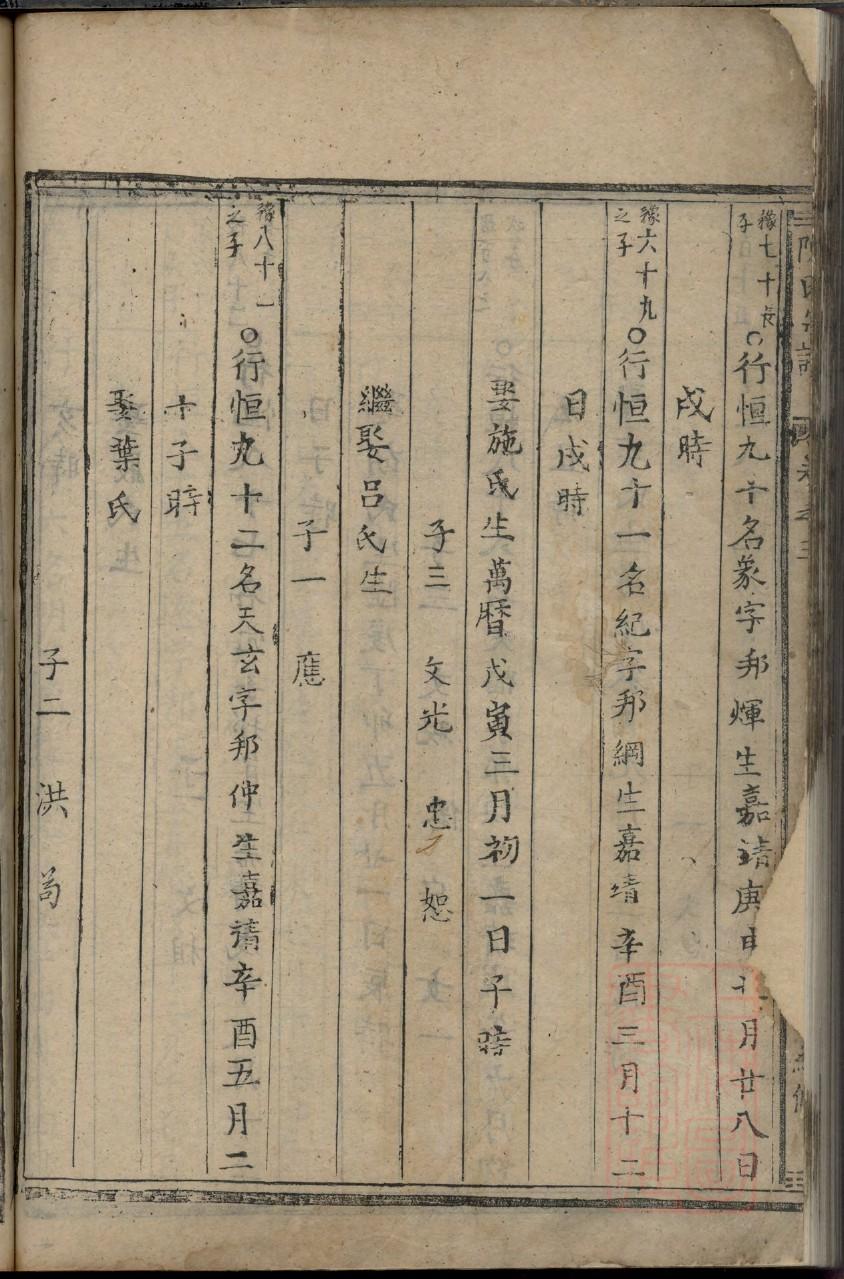 豫七十長子
○行恒九十名象字邦煇生嘉靖庚申 月廿八日
戌時
豫六十九之子
○行恒九十一名紀字邦綱生嘉靖辛酉三月十二
日戌時
娶施氏生萬曆戊寅三月初一日子時
子三 文光 忠 恕
繼娶呂氏生
子一 應
豫八十一之子
○行恒九十二名天玄字邦仲生嘉靖辛酉五月二
十子時
娶葉氏生
子二 洪